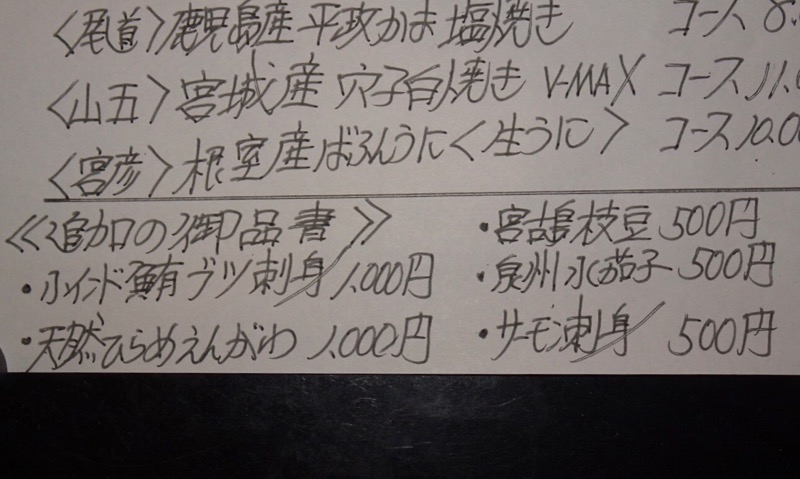 <尾道>鹿児島産 平政かま塩焼き コース 8.
<山五>宮城産 穴子白焼き V-MAX コース 11.0
<宮彦>根室産ばふんうに<生うに> コース 10.00
≪追加の御品書≫
・宮古島枝豆 500円
・インド鮪ブツ刺身 1,000円
・泉州水茄子 500円
・天然ひらめえんがわ 1,000円
・サーモン刺身 500円